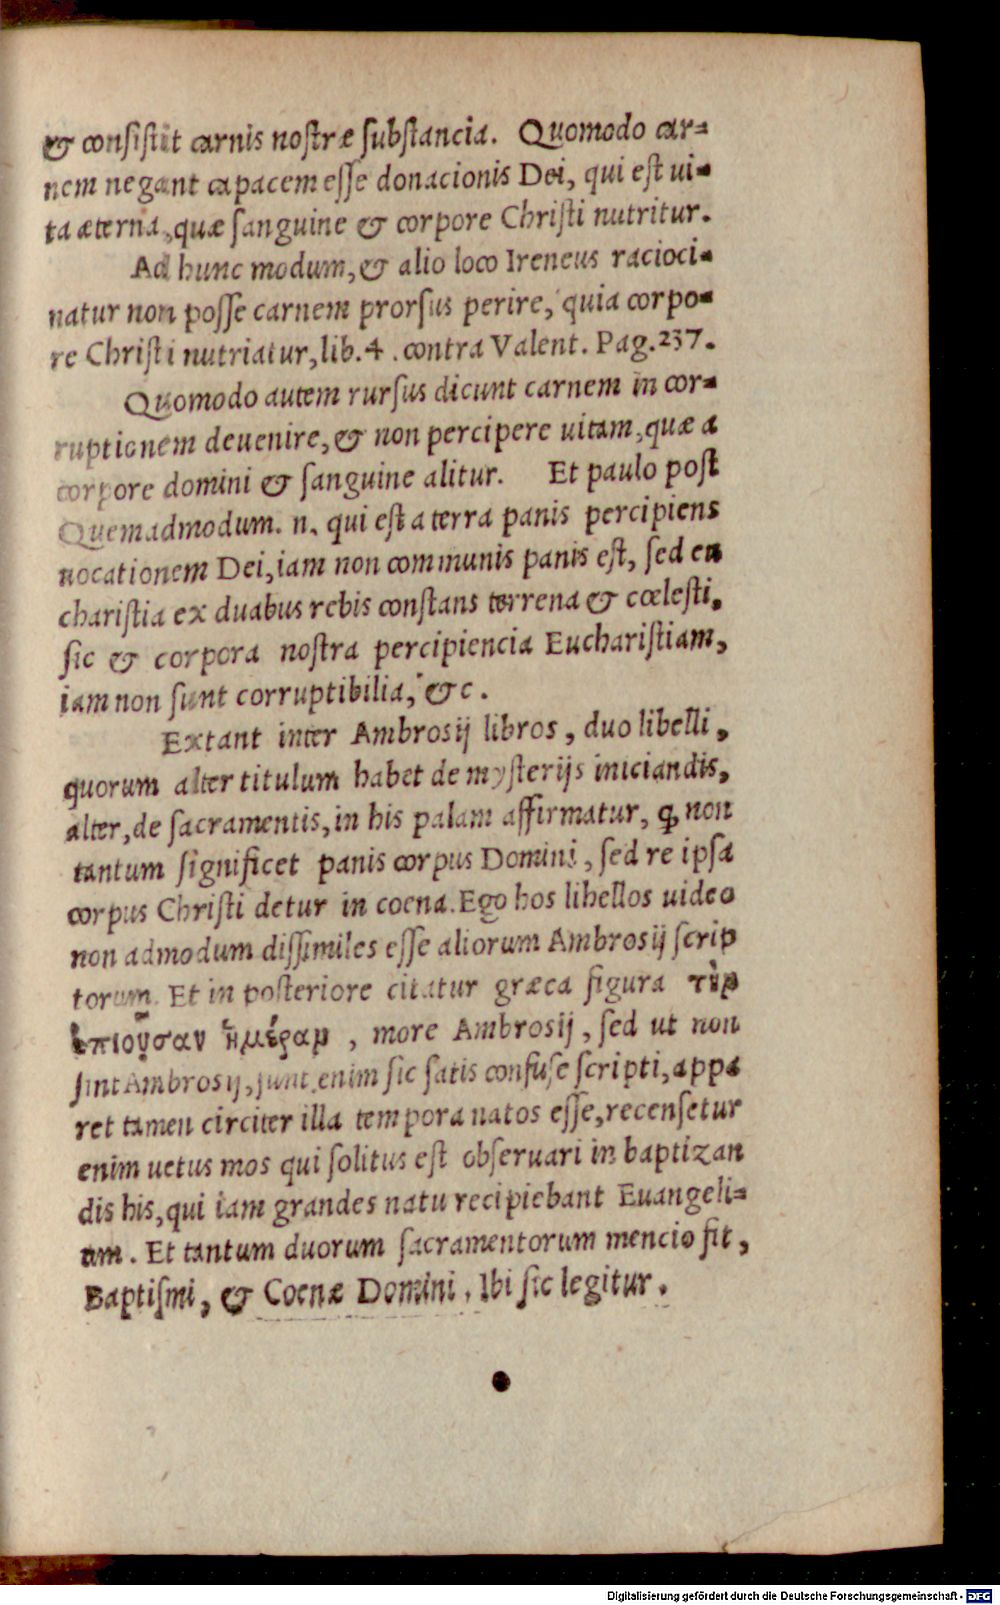 & consistit carnis nostræ substancia. Quomodo car=
nem negant capacem esse donacionis Dei, qui est ui=
ta æterna, quæ sanguine & corpore Christi nutritur.
Ad hunc modum, & alio loco Ireneus racioci=
natur non posse carnem prorsus perire, quia corpo=
re Christi nutriatur, lib. 4. contra Valent. Pag. 237.
Quomodo autem rursus dicunt carnem in cor=
ruptionem deuenire, & non percipere uitam, quæ a
corpore domini & sanguine alitur. Et paulo post
Quemadmodum. n. qui est a terra panis percipiens
uocationem Dei, iam non communis panis est, sed eu
charistia ex duabus rebis constans terrena & cœlesti,
sic & corpora nostra percipiencia Eucharistiam,
iam non sunt corruptibilia, &c.
Extant inter Ambrosij libros, duo libelli,
quorum alter titulum habet de mysterijs iniciandis,
alter, de sacramentis, in his palam affirmatur, ꝙ non
tantum significet panis corpus Domini, sed re ipsa
corpus Christi detur in coena. Ego hos libellos uideo
non admodum dissimiles esse aliorum Ambrosij scrip
torum. Et in posteriore citatur græca figura τὴν
ἐπιοῦσαν ἡμέραν, more Ambrosij, sed ut non
sint Ambrosij, sunt enim sic satis confuse scripti, appa
ret tamen circiter illa tempora natos esse, recensetur
enim uetus mos qui solitus est obseruari in baptizan
dis his, qui iam grandes natu recipiebant Euangeli=
um. Et tantum duorum sacramentorum mencio fit,
Baptismi, & Coenæ Domini. Ibi sic legitur.
Digitalisierung gefördert durch die Deutsche Forschungsgemeinschaft - DFG